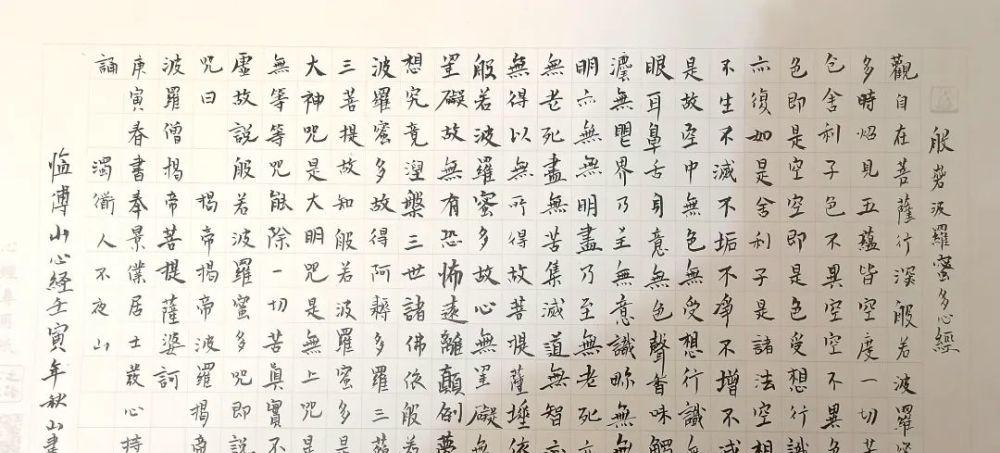 般若波羅蜜多心經
觀自在菩薩行深般若波羅蜜
多時炤見五蘊皆空度一切苦
色舍利子色不異空空不異色
色即是空空即是色受想行識
亦復如是舍利子是諸法空相
不生不滅不垢不淨不增不減
是故空中無色無受想行識
眼耳鼻舌身意無色聲香味觸
灋無眼界乃至無意識畍無無
明亦無無明盡乃至無老死亦
無老死盡無苦集滅道無智亦
無得以無所得故菩提薩埵依
般若波羅蜜多故心無罣礙無
罣礙故無有恐怖遠離顛倒夢
想究竟涅槃三世諸佛依般若
波羅蜜多故得阿耨多羅三藐
三菩提故知般若波羅蜜多是
大神咒是大明咒是無上咒是
無等等咒能除一切苦真實不
虛故說般若波羅蜜多咒即說
咒曰 揭帝揭帝波羅揭帝
波羅僧揭帝菩提薩婆訶
庚寅春書奉景僕居士發心持
誦 濁衜人不夜山
临傅山心經壬寅年秋山書